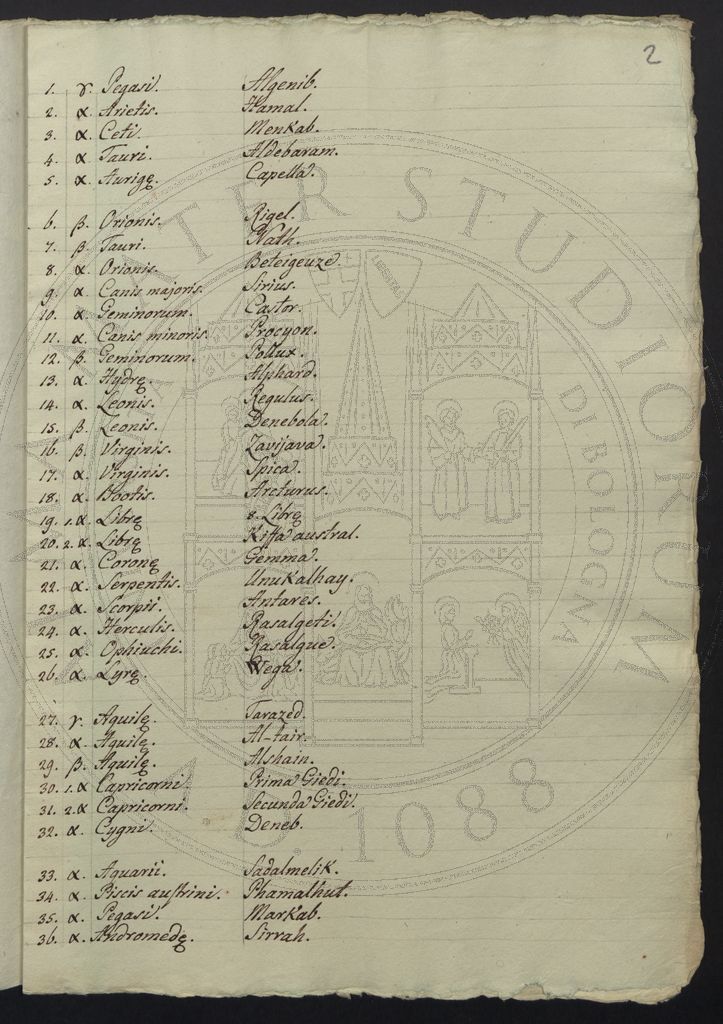 2
1. γ. Pegasi. Algenib.
2. α. Arietis. Hamal.
3. α. Ceti. Menkab.
4. α. Tauri. Aldebaram.
5. α. Aurigę. Capella.
6. β. Orionis. Rigel.
7. β. Tauri. Nath.
8. α. Orionis. Beteigeuze.
9. α. Canis majoris. Sirius.
10. α. Geminorum. Castor.
11. α. Canis minoris. Procyon.
12. β. Geminorum. Pollux.
13. α. Hydrę. Alphard.
14. α. Leonis. Regulus.
15. β. Leonis. Denebola.
16. β. Virginis. Zavijava.
17. α. Virginis. Spica.
18. α. Bootis. Arcturus.
19. 1. α. Librę 8. Librę
20. 2. α. Librę Kiffa austral.
21. α. Coronę Gemma.
22. α. Serpentis. Unukalhay.
23. α. Scorpii. Antares.
24. α. Herculis. Rasalgeti.
25. α. Ophiuchi. Rasalgue.
26. α. Lyrę Wega.
27. γ. Aquilę. Tarazed.
28. α. Aquilę. Al-tair.
29. β. Aquilę. Alshain.
30. 1. α Capricorni Prima Giedi.
31. 2. α Capricorni Secunda Giedi.
32. α. Cygni. Deneb.
33. α. Aquarii. Sadalmelik.
34. α. Piscis austrini. Phamalhut.
35. α. Pegasi. Markab.
36. α. Andromedę. Sirrah.
ALMA MATER STUDIORUM
A.D. 1088
DI BOLOGNA
LIBERTAS